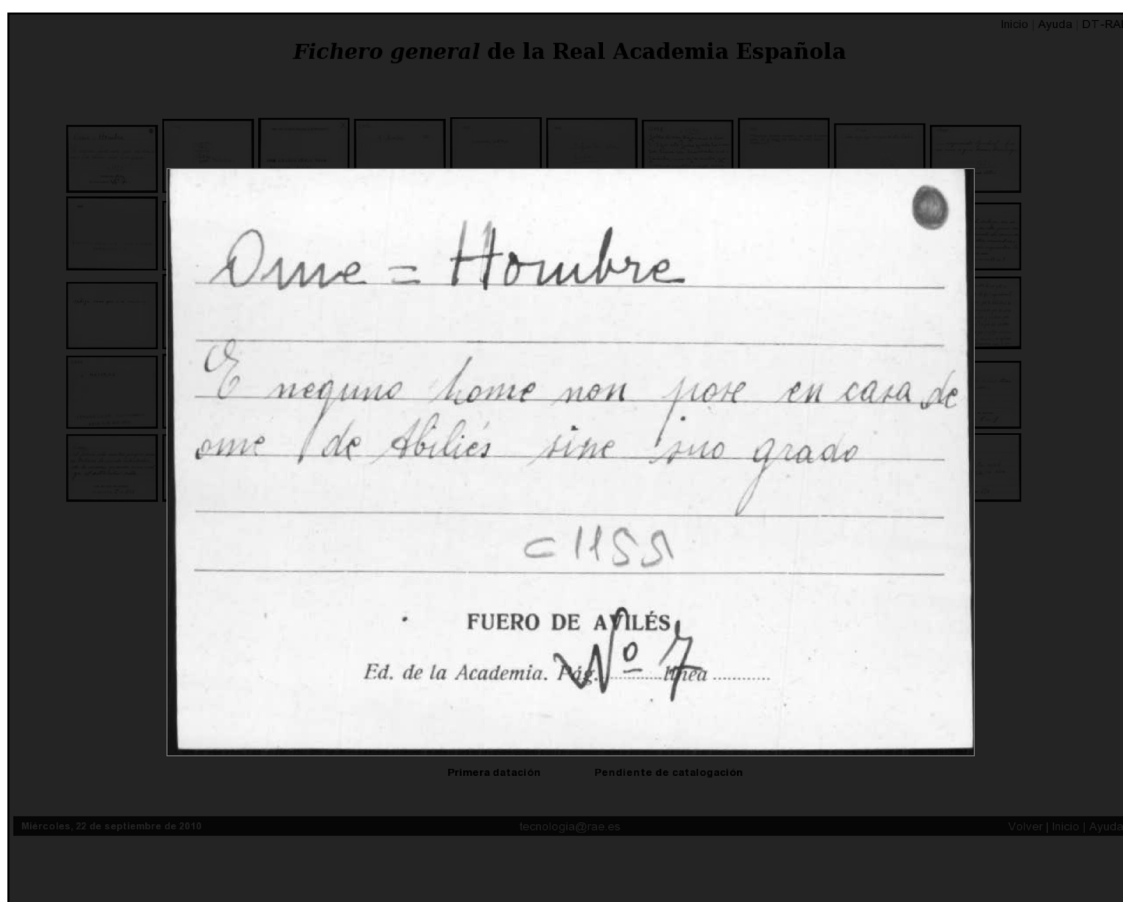 Inicio | Ayuda | DT-RAE
Fichero general de la Real Academia Española
Ome = Hombre
E neguno home non pose en casa de
ome de Abiliés sine suo grado
c 1155
FUERO DE AVILÉS
Nº 7
Ed. de la Academia. Pág. ............ línea ............
Primera datación Pendiente de catalogación
Miércoles, 22 de septiembre de 2010 tecnologia@rae.es Volver | Inicio | Ayuda